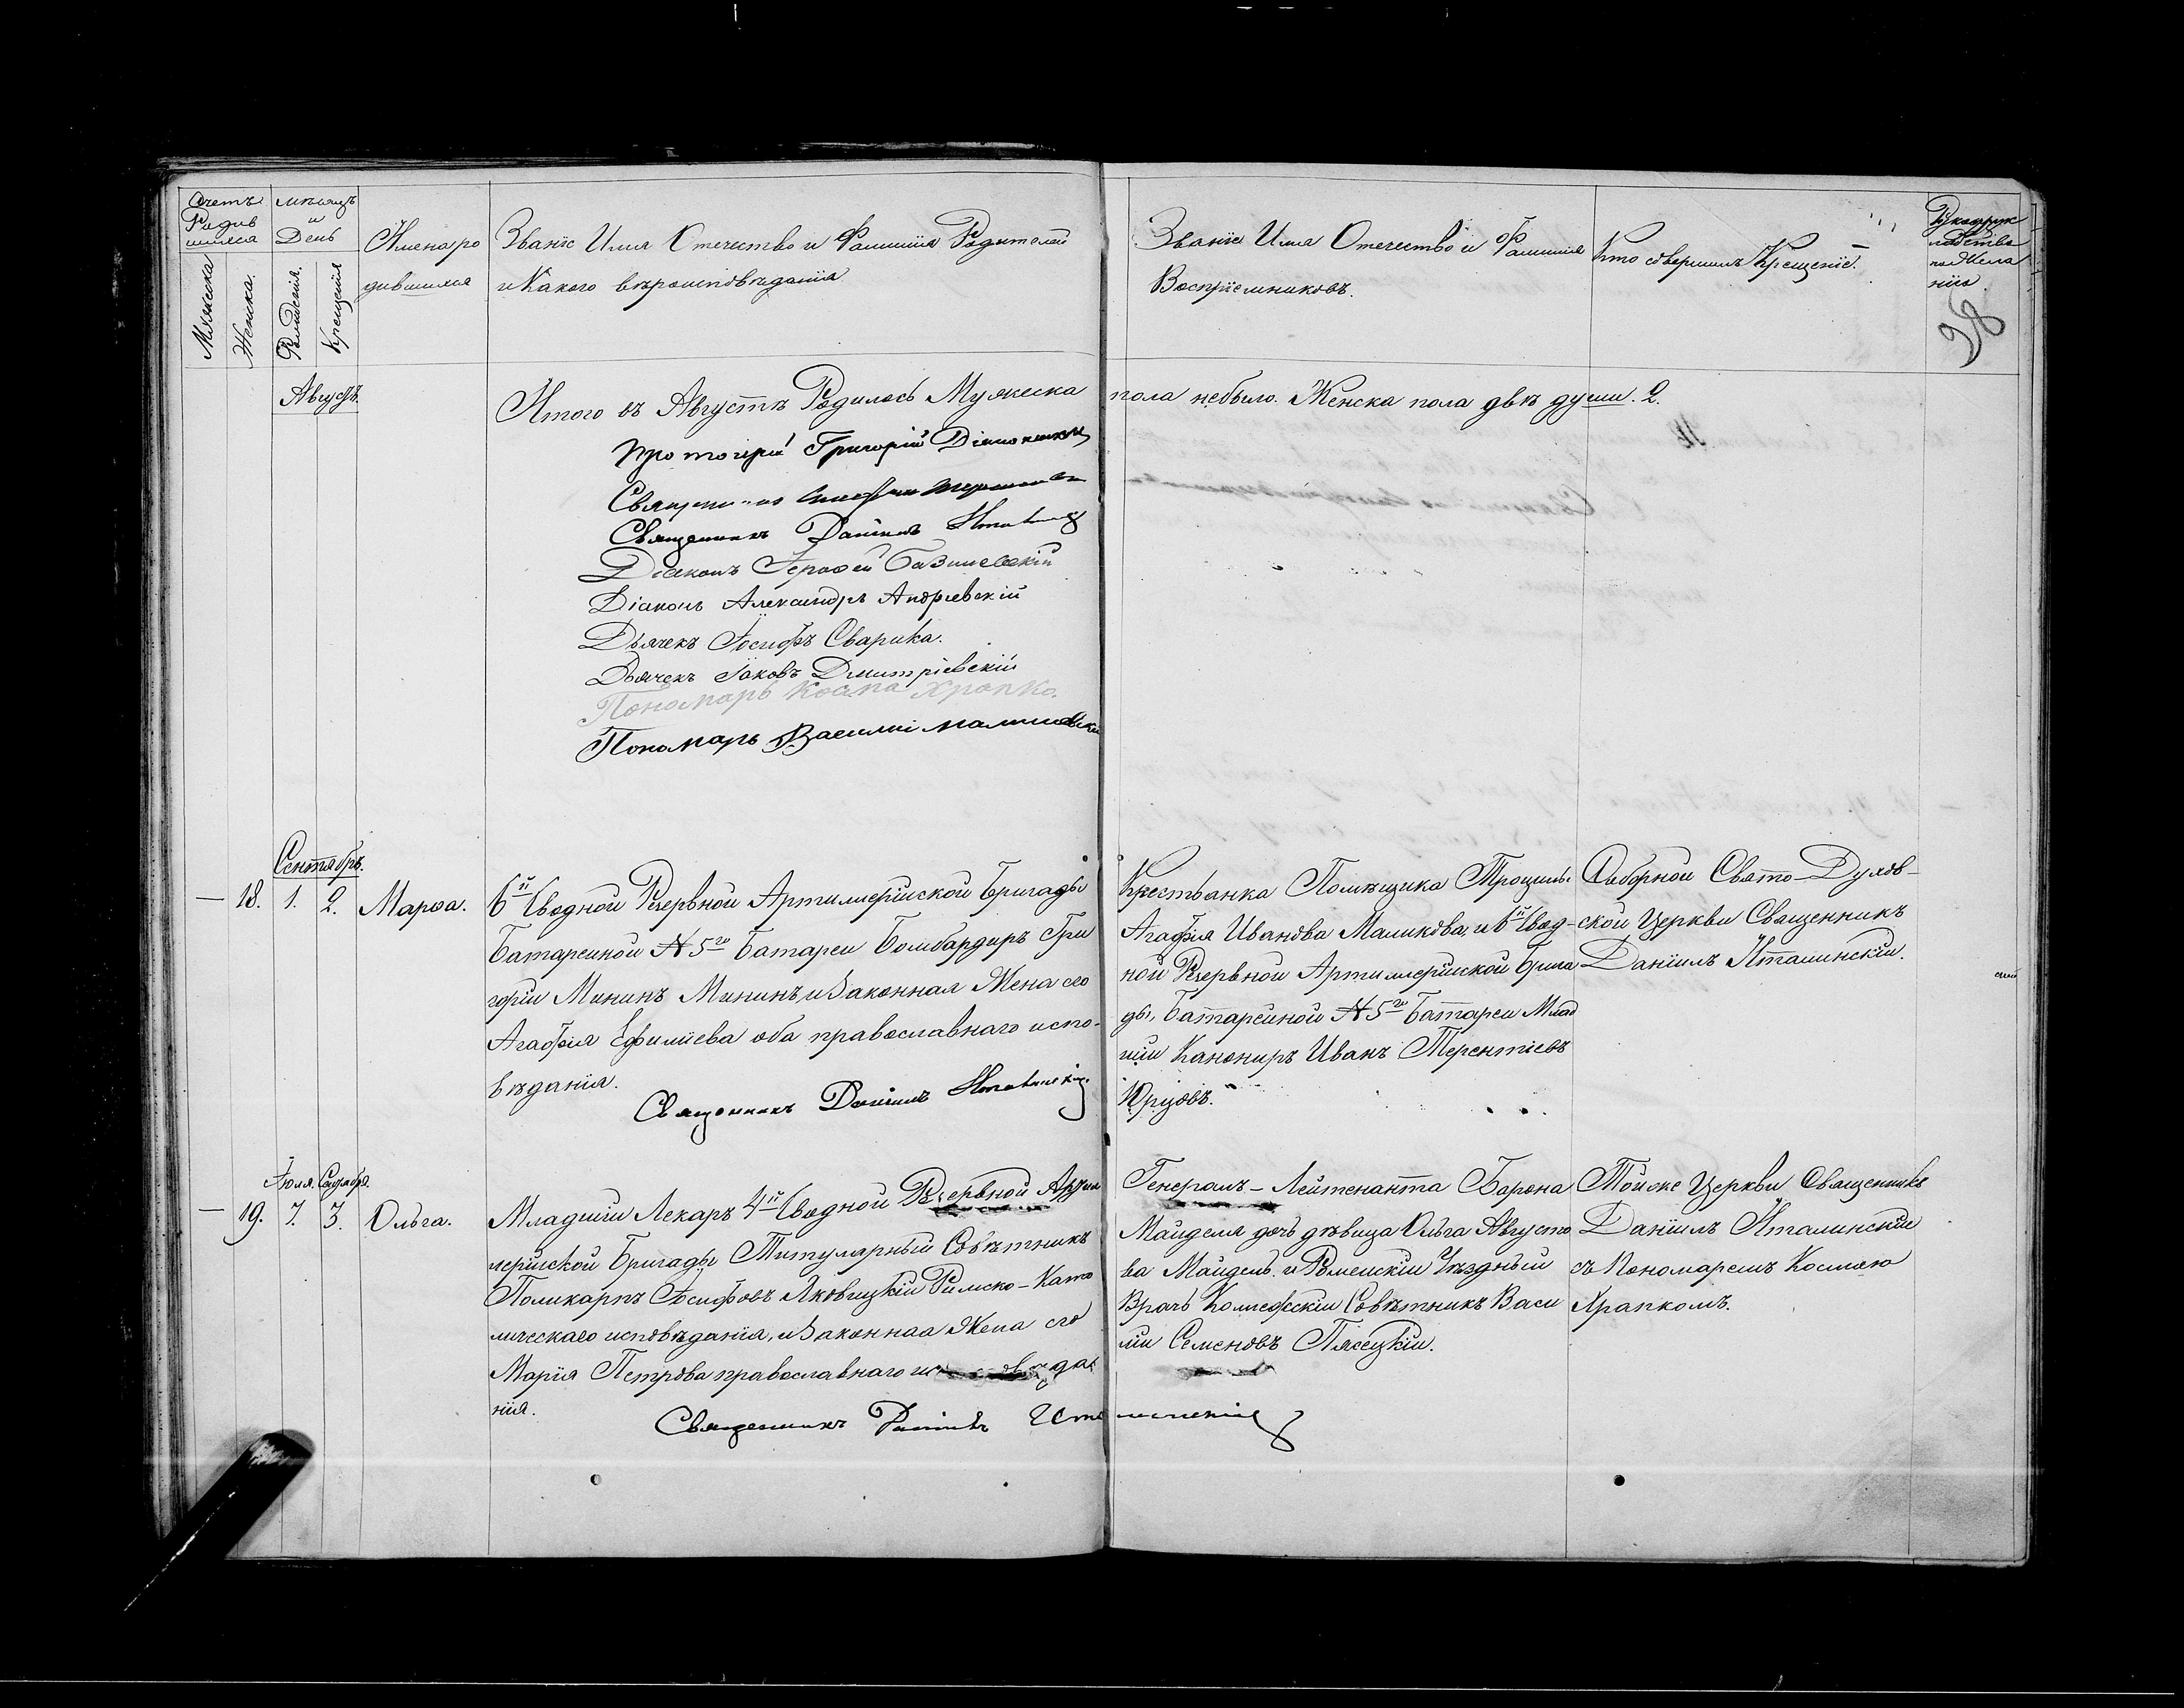 Счетъ Родив шихся
Мужеска
Женска.
мѣсяцъ и День
Рожденія.
Крещенія
Имена ро
дившихся
Званіе Имя Отечество и Фамилія Родителей
и Какого вѣроисповѣданія
Званіе Имя Отечество и Фамилія
Воспріемниковъ.
Кто совершилъ Крещеніе.
Рукоприк
ладства
по Жела
нію.
98
Августъ.
Итого въ Августѣ Родилось Мужеска пола небыло. Женска пола двѣ души. 2.
Протоіерей Григорій
Священникъ
Священникъ Даніилъ Италинскій
Діаконъ Іерофей Базилевскій
Діаконъ Александръ Андріевскій
Дьячекъ Іосифъ Сварика.
Дьячекъ Іаковъ Дмитріевскій
Пономарь Косма Храпко.
Пономарь Василій Малиновскій
Сентябрь.
— 18. 1. 2. Марѳа.
6й Сводной Резервной Артиллерійской Бригады
Батарейной № 5го Батареи Бомбардиръ Гри
горій Мининъ Мининъ и Законная Жена его
Агафія Ефиміева оба православнаго испо-
вѣданія.
Священникъ Даніилъ Италинскій.
Крестьянка Помѣщика
Агафія Иванова Маликова, и 6й Свод-
ной Резервной Артиллерійской Брига
ды, Батарейной № 5го Батареи Млад
шій Канониръ Иванъ Терентіевъ
Юрцовъ.
Соборной Свято-Духов-
ской Церкви Священникъ
Даніилъ Италинскій.
Іюля. Сентябр.
— 19. 7. 3. Ольга.
Младшій Лекарь 4й Сводной Резервной Артил
лерійской Бригады Титулярный Совѣтникъ
Поликарпъ Іосифовъ Яковицкій Римско-Като
лическаго исповѣданія, и Законная Жена его
Марія Петрова православнаго исповѣда
нія.
Священникъ Даніилъ Италинскій
Генералъ-Лейтенанта Барона
Майделя дочь дѣвица Ольга Августо
ва Майдель. и Роменскій Уѣздный
Врачъ Коллежскій Совѣтникъ Васи
лій Семеновъ Пясецкій.
Той же Церкви Священникъ
Даніилъ Италинскій
съ Пономаремъ Космою
Храпкомъ.